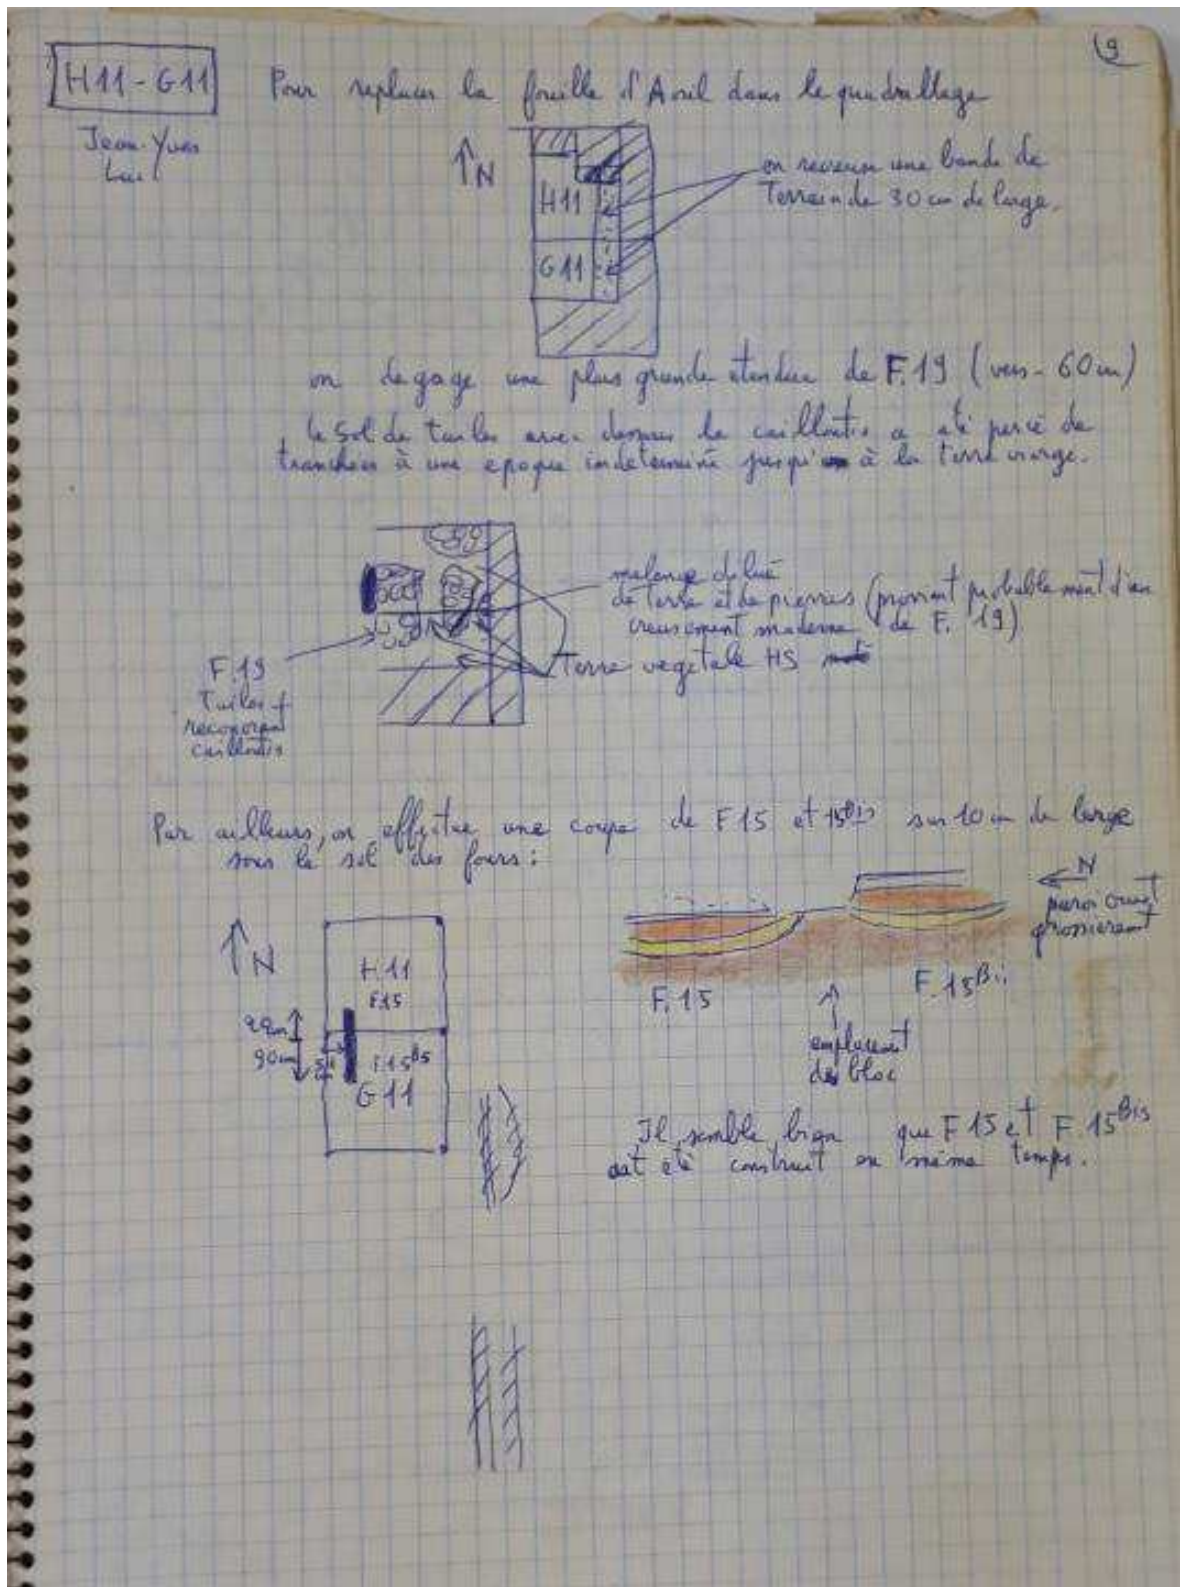 19
H11-G11
Pour replacer la fouille d'Avril dans le quadrallage
Jean-Yves
Luc
N
H11
G11
on recreuse une bande de
Terrain de 30 cm de large.
on degage une plus grande etendue de F.19 (vers - 60 cm)
le Sol de tuiles avec dessous le cailloutis a été percé de
tranchées à une epoque indeterminé jusqu' à la terre vierge.
melange dilué
de terre et de pierres (provient probablement d'un
creusement moderne de F. 19)
Terre vegetale HS
F.19
Tuiles +
cailloutis
Par ailleurs, on effectue une coupe de F15 et 15Bis sur 10 cm de large
sous le sol des fours :
N
H11
F15
90cm
F.15Bis
G11
N
paroi
grossierement
F.15
F.15Bis
emplacement
du bloc
Il semble bien que F15 et F.15Bis
ont été construit en même temps.